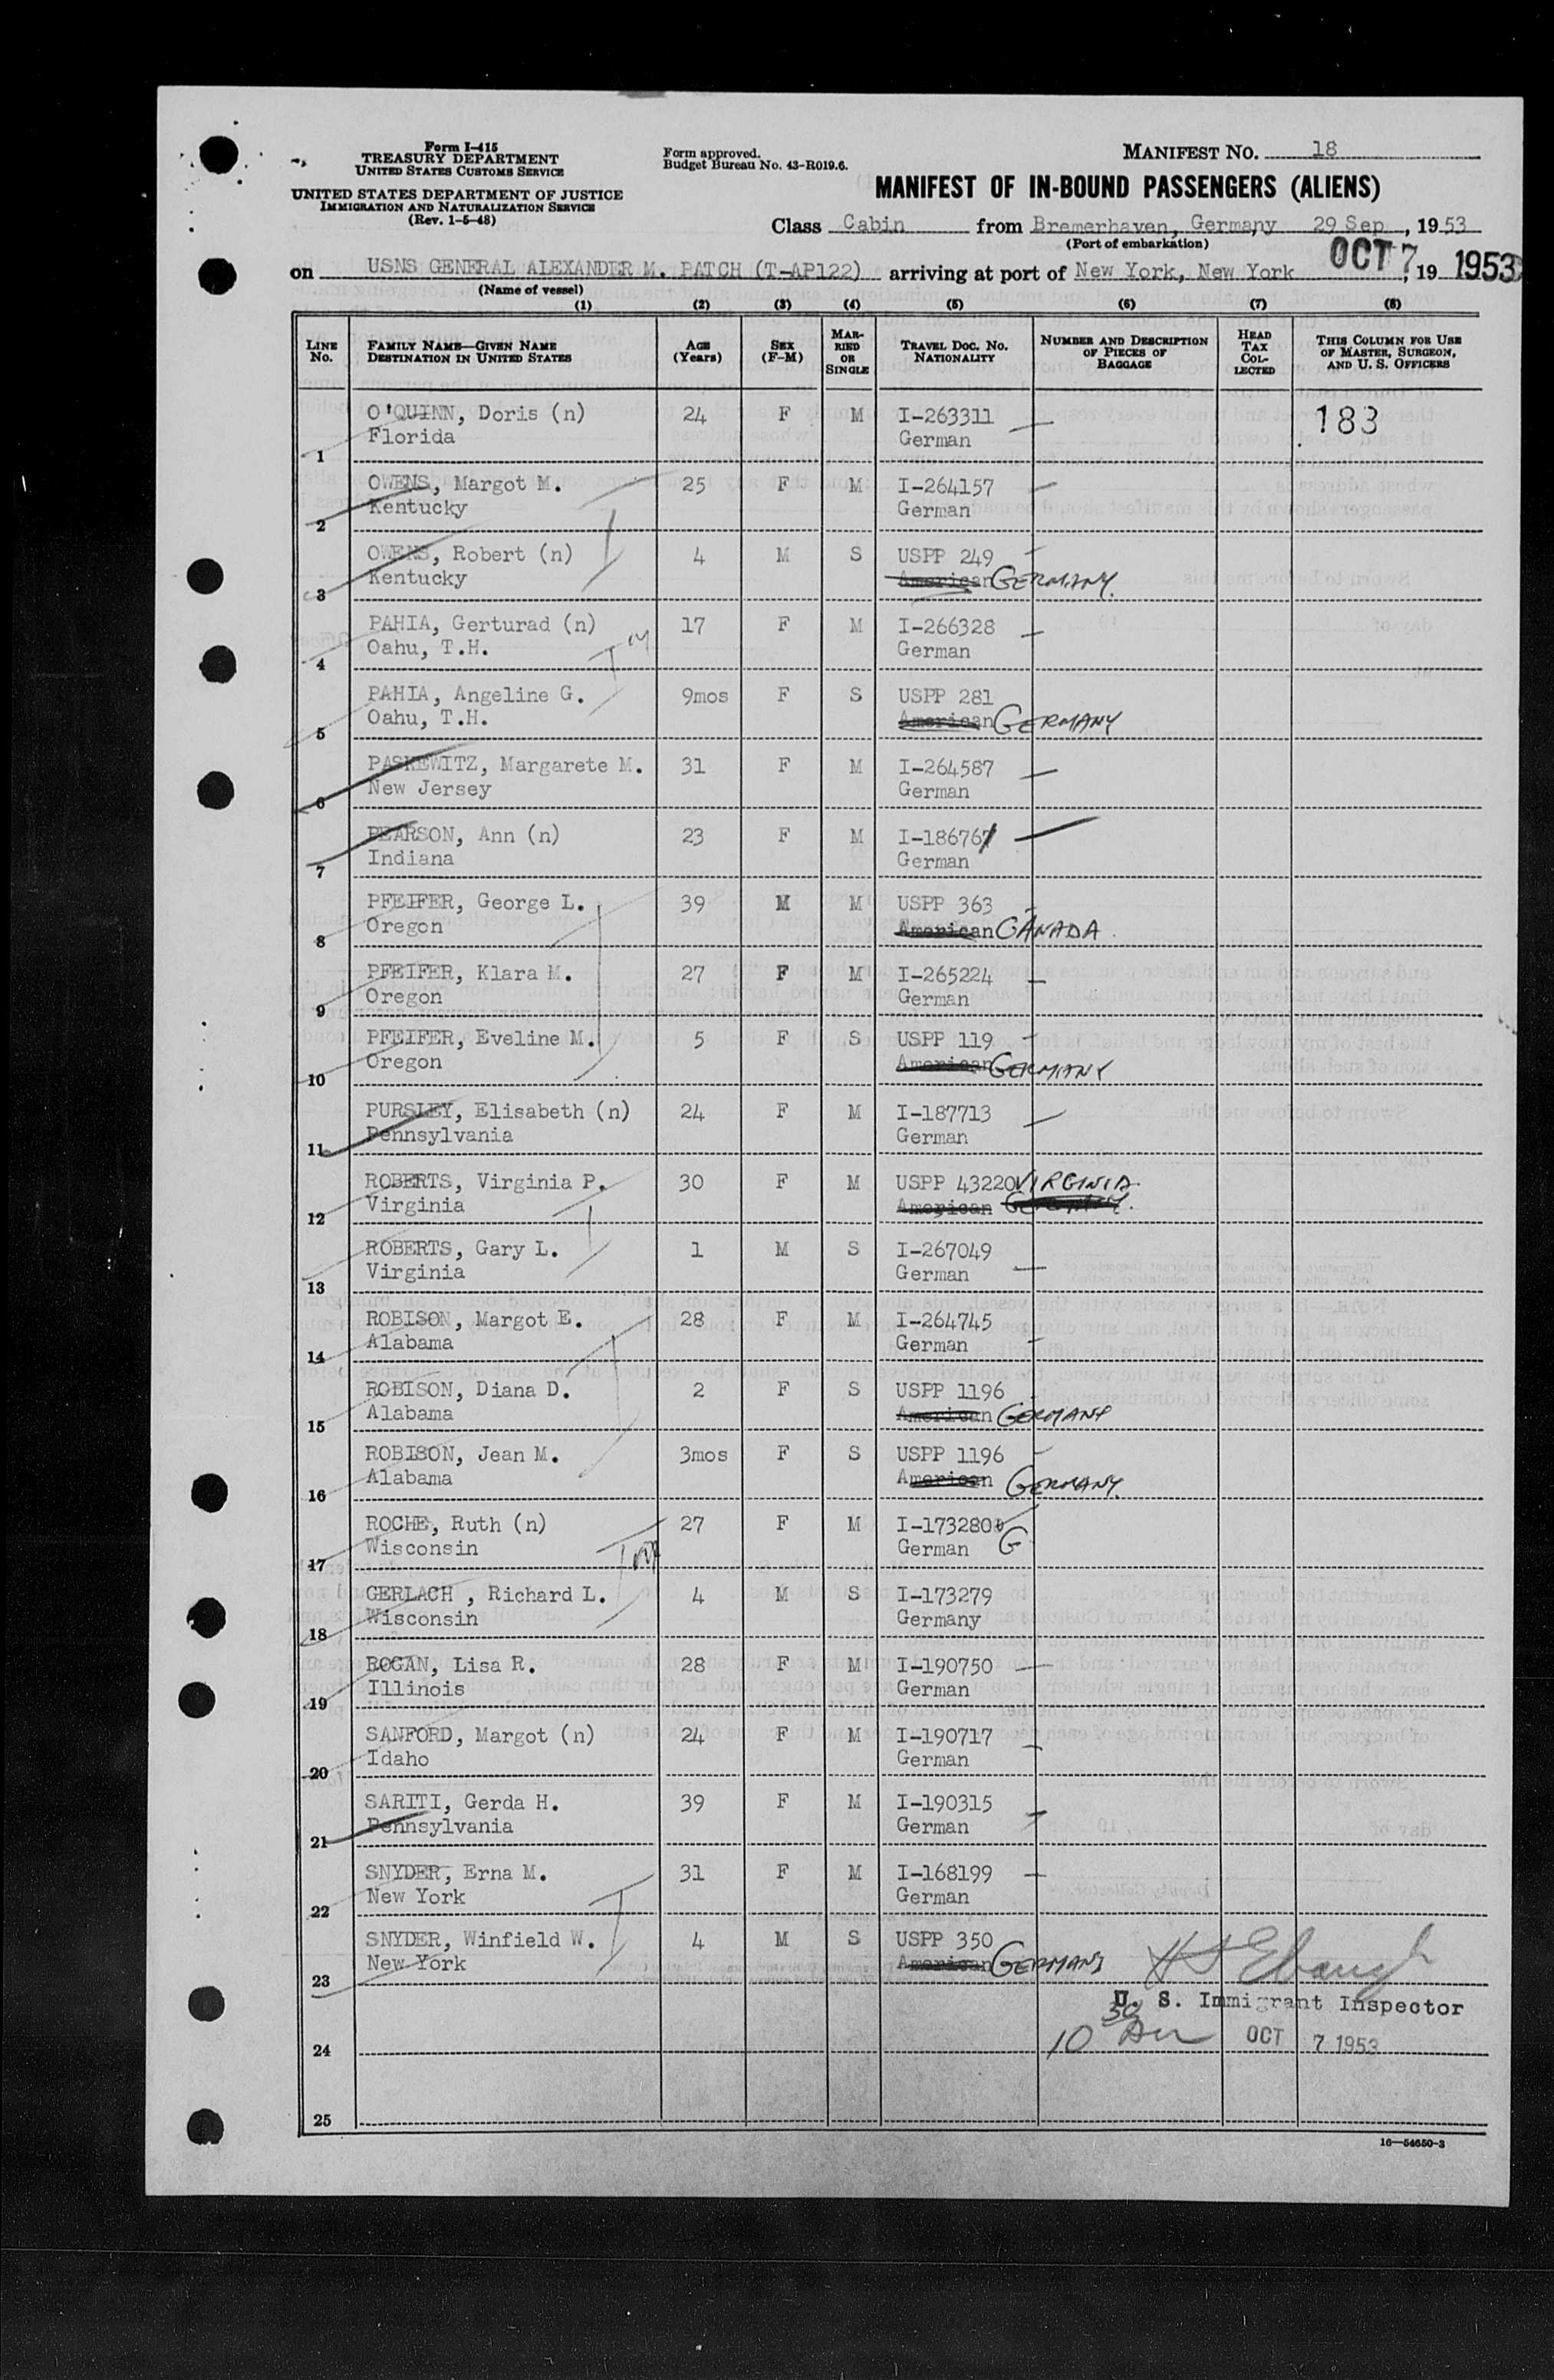 Form I-415
TREASURY DEPARTMENT
UNITED STATES CUSTOMS SERVICE
UNITED STATES DEPARTMENT OF JUSTICE
IMMIGRATION AND NATURALIZATION SERVICE
(Rev. 1-5-48)
Form approved.
Budget Bureau No. 43-R019.6.
MANIFEST NO. 18
MANIFEST OF IN-BOUND PASSENGERS (ALIENS)
Class Cabin from Bremerhaven, Germany 29 Sep, 1953
(Port of embarkation)
on USNS GENERAL ALEXANDER M. PATCH (T-AP122) arriving at port of New York, New York OCT 7, 19 1953
(Name of vessel)
(1) (2) (3) (4) (5) (6) (7) (8)
LINE No. FAMILY NAME—GIVEN NAME DESTINATION IN UNITED STATES AGE (Years) SEX (F-M) MARRIED OR SINGLE TRAVEL DOC. NO. NATIONALITY NUMBER AND DESCRIPTION OF PIECES OF BAGGAGE HEAD TAX COLLECTED THIS COLUMN FOR USE OF MASTER, SURGEON, AND U. S. OFFICERS
O'QUINN, Doris (n) 24 F M I-263311 183
1 Florida German
OWENS, Margot M. 25 F M I-264157
2 Kentucky German
OWENS, Robert (n) 4 M S USPP 249
3 Kentucky American GERMANY.
PAHIA, Gerturad (n) 17 F M I-266328
4 Oahu, T.H. German
PAHIA, Angeline G. 9mos F S USPP 281
5 Oahu, T.H. American GERMANY
PASKEWITZ, Margarete M. 31 F M I-264587
6 New Jersey German
PEARSON, Ann (n) 23 F M I-186767
7 Indiana German
PFEIFER, George L. 39 M M USPP 363
8 Oregon American CANADA
PFEIFER, Klara M. 27 F M I-265224
9 Oregon German
PFEIFER, Eveline M. 5 F S USPP 119
10 Oregon American GERMANY
PURSLEY, Elisabeth (n) 24 F M I-187713
11 Pennsylvania German
ROBERTS, Virginia P. 30 F M USPP 43220 VIRGINIA.
12 Virginia American GERMANY.
ROBERTS, Gary L. 1 M S I-267049
13 Virginia German
ROBISON, Margot E. 28 F M I-264745
14 Alabama German
ROBISON, Diana D. 2 F S USPP 1196
15 Alabama American GERMANY
ROBISON, Jean M. 3mos F S USPP 1196
16 Alabama American GERMANY.
ROCHE, Ruth (n) 27 F M I-173280
17 Wisconsin German G
GERLACH , Richard L. 4 M S I-173279
18 Wisconsin Germany
ROGAN, Lisa R. 28 F M I-190750
19 Illinois German
SANFORD, Margot (n) 24 F M I-190717
20 Idaho German
SARITI, Gerda H. 39 F M I-190315
21 Pennsylvania German
SNYDER, Erna M. 31 F M I-168199
22 New York German
SNYDER, Winfield W. 4 M S USPP 350
23 New York American GERMANY H S Ebaugh
U. S. Immigrant Inspector
24 10 30 Am OCT 7 1953
25
16—54650-3